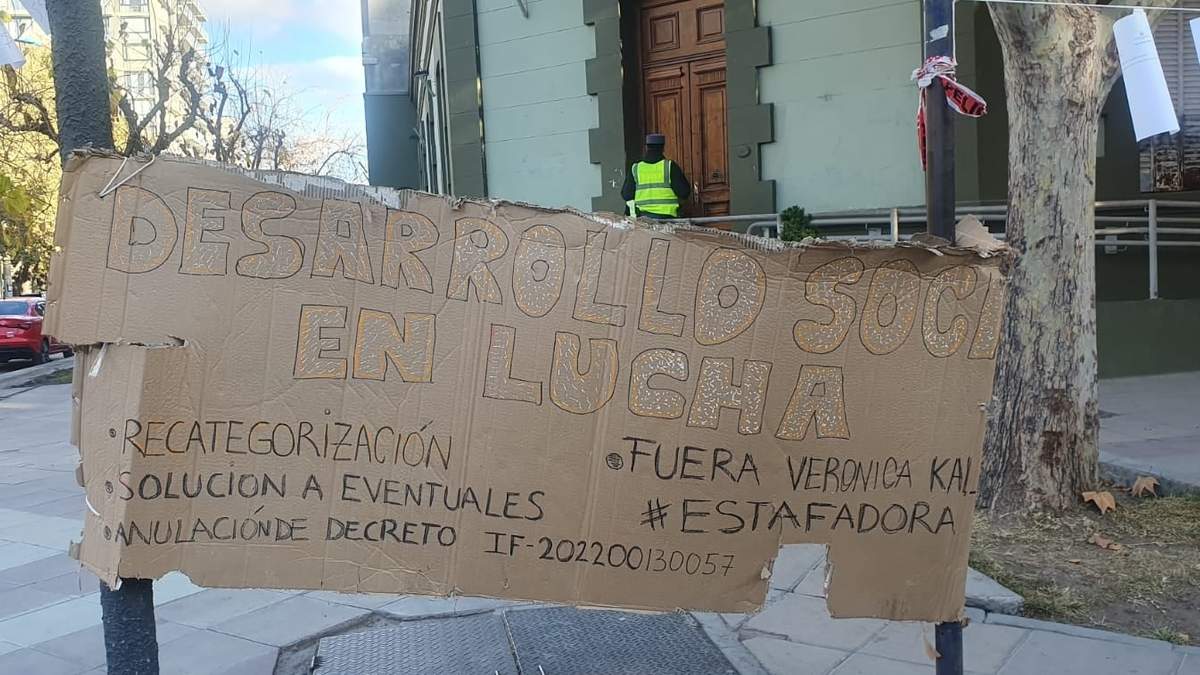 DESARROLLO SOCI
EN LUCHA
• RECATEGORIZACIÓN
• SOLUCION A EVENTUALES
• ANULACIÓN DE DECRETO IF-202200130057
• FUERA VERONICA KAL
#ESTAFADORA